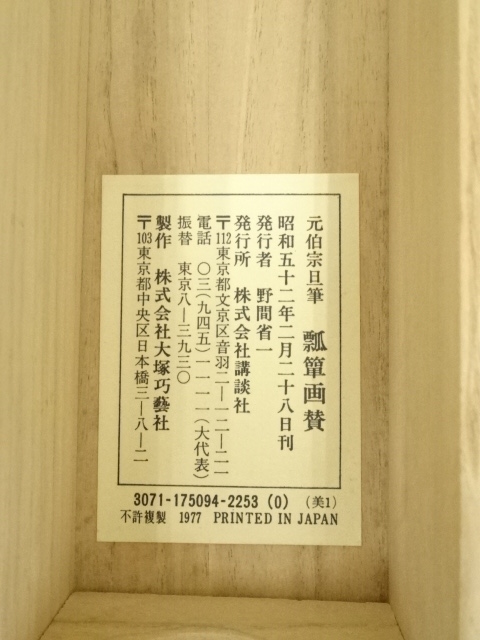 元伯宗旦筆 瓢簞画賛
昭和五十二年二月二十八日刊
発行者 野間省一
発行所 株式会社講談社
〒112東京都文京区音羽二―一二―二一
電話 〇三(九四五)一一一一(大代表)
振替 東京八―三九三〇
製作 株式会社大塚巧藝社
〒103東京都中央区日本橋三―八―二
3071-175094-2253 (0) (美1)
不許複製 1977 PRINTED IN JAPAN